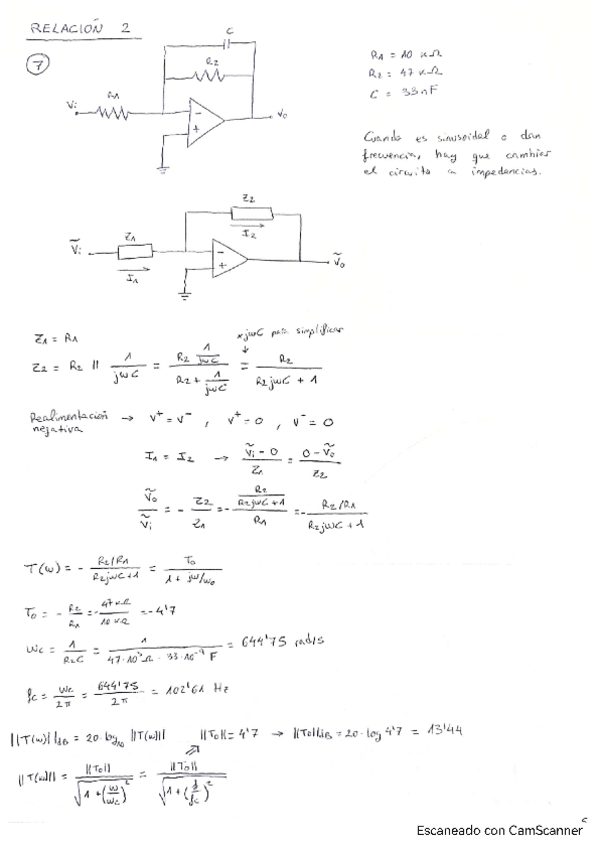 RELACIÓN 2
7
C
R2
R1
Vi
Vo
-
+
R1 = 10 kΩ
R2 = 47 kΩ
C = 33 nF
Cuando es sinusoidal o dan
frecuencia, hay que cambiar
el circuito a impedancias.
Z2
I2
Z1
Ṽi
I1
Ṽo
-
+
Z1 = R1
×jωC para simplificar
Z2 = R2 || 1/jωC = (R2 1/jωC)/(R2 + 1/jωC) = R2/(R2jωC + 1)
Realimentación negativa → V⁺ = V⁻ , V⁺ = 0 , V⁻ = 0
I1 = I2 → (Ṽi - 0)/Z1 = (0 - Ṽo)/Z2
Ṽo/Ṽi = - Z2/Z1 = - (R2/(R2jωC + 1))/R1 = - (R2/R1)/(R2jωC + 1)
T(ω) = - (R2/R1)/(R2jωC + 1) = To/(1 + jω/ωo)
To = - R2/R1 = - 47 kΩ/10 kΩ = -4'7
ωc = 1/(R2C) = 1/(47·10³Ω · 33·10⁻⁹ F) = 644'75 rad/s
fc = ωc/2π = 644'75/2π = 102'61 Hz
||T(ω)||dB = 20·log10 ||T(ω)|| ||To|| = 4'7 → ||To||dB = 20·log 4'7 = 13'44
||T(ω)|| = ||To||/√(1 + (ω/ωc)²) = ||To||/√(1 + (f/fc)²)
Escaneado con CamScanner